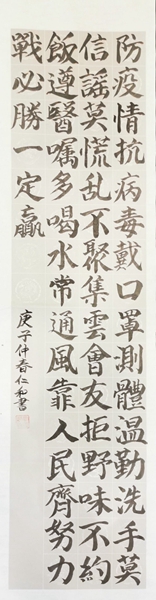 防疫情抗病毒戴口罩測體温勤洗手莫
信謡莫慌乱不聚集雲會友拒野味不約
飯遵醫嘱多喝水常通風靠人民齊努力
戰必勝一定贏
庚子仲春仁和書